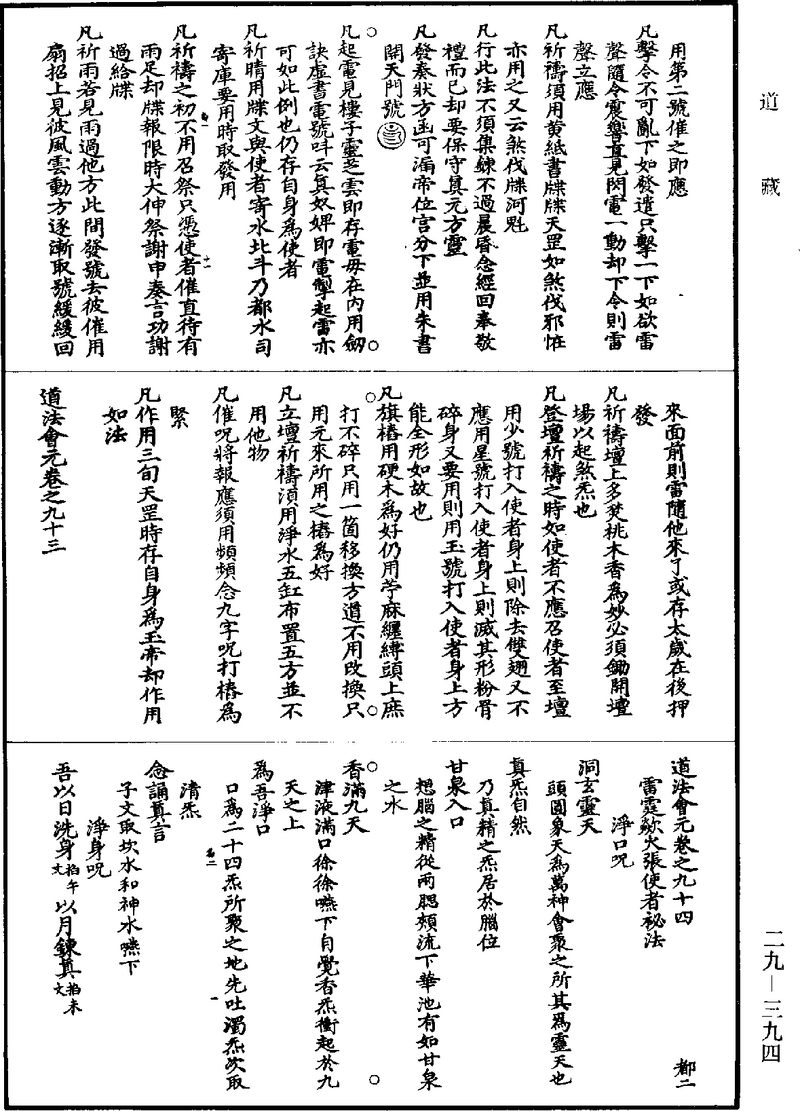 道藏
用第二號催之即應
凡擊令不可亂下如發遣只擊一下如欲雷
聲隨令震響直見閃電一動却下令則雷
聲立應
凡祈禱須用黃紙書牒牒天罡如煞伐邪恠
亦用之又云煞伐牒河魁
凡行此法不須集鍊不過晨昏念經回奉敬
禮而已却要保守真元方靈
凡發奏狀方函可漏帝位宮分下並用朱書
開天門號
凡起電見樓子靈芝雲即存電母在內用劒
訣虛書電號吽云真奴婢即電掣起雷亦
可如此例也仍存自身為使者
凡祈晴用牒文與使者寄水北斗乃都水司
寄庫要用時取發用
凡祈禱之初不用召祭只憑使者催直待有
雨足却牒報限時大伸祭謝申奏言功謝
過給牒
凡祈雨若見雨過他方此間發號去彼催用
扇招上見彼風雲動方逐漸取號緩緩回
來面前則雷隨他來了或存太歲在後押
發
凡祈禱壇上多焚桃木香為妙必須鋤開壇
場以起煞炁也
凡登壇祈禱之時如使者不應召使者至壇
用少號打入使者身上則除去雙翅又不
應用星號打入使者身上則滅其形粉骨
碎身又要用則用玉號打入使者身上方
能全形如故也
凡旗樁用硬木為好仍用苧麻纏縛頭上庶
打不碎只用一箇移換方道不用改換只
用元來所用之樁為好
凡立壇祈禱湏用淨水五缸布置五方並不
用他物
凡催呪將報應須用頻頻念九字呪打樁為
緊
凡作用三旬天罡時存自身為玉帝却作用
如法
道法會元卷之九十三
道法會元卷之九十四 都二
雷霆歘火張使者祕法
淨口呪
洞玄靈天
頭圓象天為萬神會聚之所其為靈天也
真炁自然
乃真精之炁居於腦位
甘泉入口
想腦之精從兩腮頰流下華池有如甘泉
之水
香滿九天
津液滿口徐徐嚥下自覺香炁衝起於九
天之上
為吾淨口
口為二十四炁所聚之地先吐濁炁次取
清炁
念誦真言
子文取坎水和神水嚥下
淨身呪
吾以日洗身掐午文以月鍊真掐未文
二九—三九四